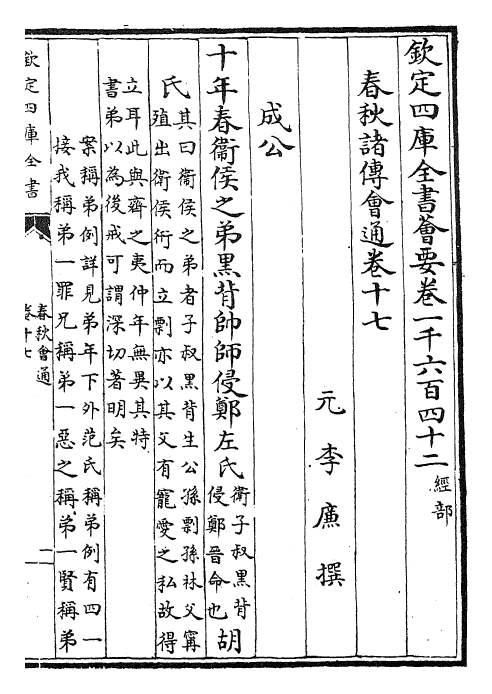 欽定四庫全書薈要卷一千六百四十二經部
春秋諸傳會通卷十七
元李廉撰
成公
十年春衞侯之弟黑背帥師侵鄭左氏衛子叔黑背侵鄭晉命也胡
氏其曰衛侯之弟者子叔黑背生公孫剽孫林父甯殖出衛侯衎而立剽亦以其父有寵愛之私故得
立耳此與齊之夷仲年無異其特書弟以為後戒可謂深切著明矣
案稱弟例詳見弟年下外范氏稱弟例有四一
接我稱弟一罪兄稱弟一惡之稱弟一賢稱弟
欽定四庫全書
春秋會通
卷十七
一